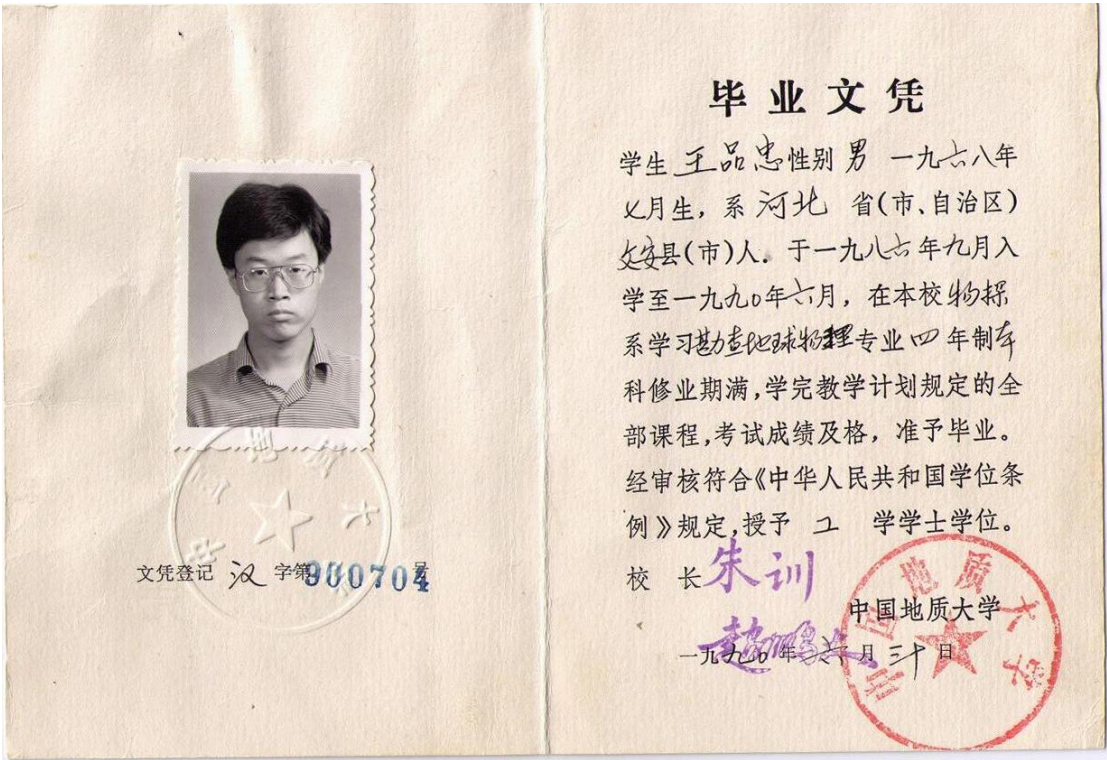 文凭登记 汉 字第900704号
毕业文凭
学生 王品忠 性别 男 一九六八年
七月生，系 河北 省(市、自治区)
文安县(市)人．于一九八六年九月入
学至一九九〇年六月，在本校物探
系学习勘查地球物理专业四年制本
科修业期满，学完教学计划规定的全
部课程，考试成绩及格，准予毕业。
经审核符合《中华人民共和国学位条
例》规定，授予 工 学学士学位。
校 长 朱训
中国地质大学
赵鹏大
一九九〇年六月三十日
中国地质大学
中国地质大学